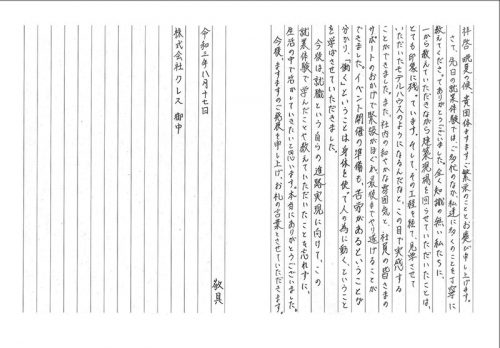 拝啓 晩夏の候、貴団体ますますご繁栄のこととお慶び申し上げます。
さて、先日の就業体験では、ご多忙のなか私達に多くのことを丁寧に
教えてくださり、ありがとうございました。全く知識の無い私たちに、
一から教えていただきながら建築現場を回らせていただいたことは、
とても印象に残っています。そして、その工程を経て、見学させて
いただいたモデルハウスのようになるんだなと、この目で実感する
ことができました。また、社内の和やかな雰囲気と、社員の皆さまの
サポートのおかげで緊張がほぐれ、最後までやり遂げることが
できました。イベント開催の準備も、苦労があるということが
分かり、「働く」ということは身体を使って人の為に動く、ということ
を学ばさせていただきました。
今後は就職という自らの進路実現に向けて、この
就業体験で学んだことや教えていただいたことを忘れずに、
生活の中で活かしていきたいと思います。本当にありがとうございました。
今後、ますますのご発展を申し上げ、お礼の言葉とさせていただきます。
敬具
令和三年八月十七日
株式会社クレス 御中